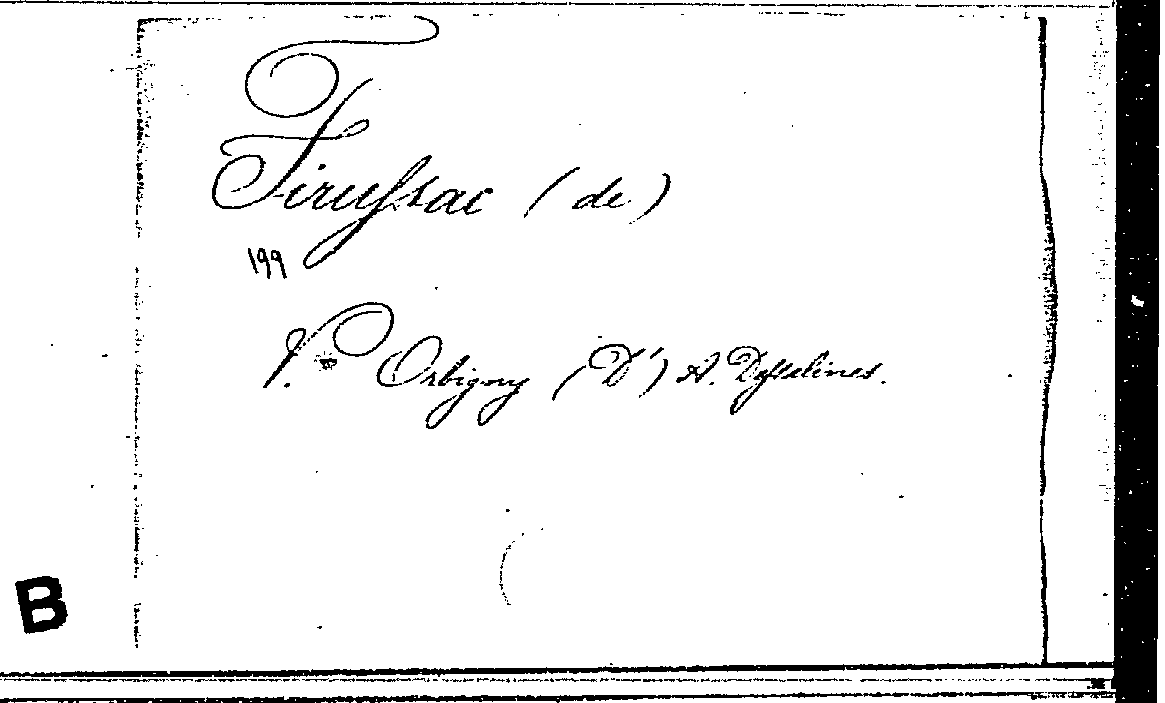 Firussac (de)
199
V. Orbigny (D') A. Dessalines.
B